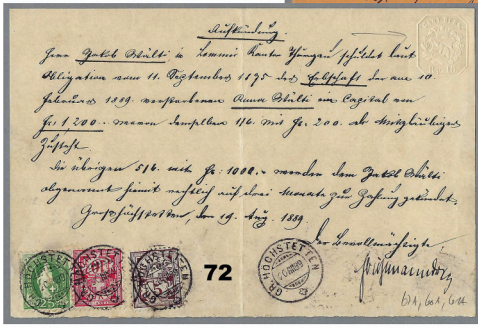 Aufkündung.
Herr Jakob Wälti in Lommis Kanton Thurgau schuldet laut
Obligation vom 11. September 1875 der Erbschaft der am 10.
Februar 1889 verstorbenen Anna Wälti ein Capital von
Fr: 1200. wovon demselben 1/6 mit Fr: 200. als
zusteht.
Die übrigen 5/6 mit Fr: 1000.- werden dem Jakob Wälti
obgenannt hiemit rechtlich auf drei Monate zur Zahlung gekündet.
Grosshöchstetten, den 19. Aug. 1889.
Der Bevollmächtigte
GR. HÖCHSTETTEN
20 VIII 89
72